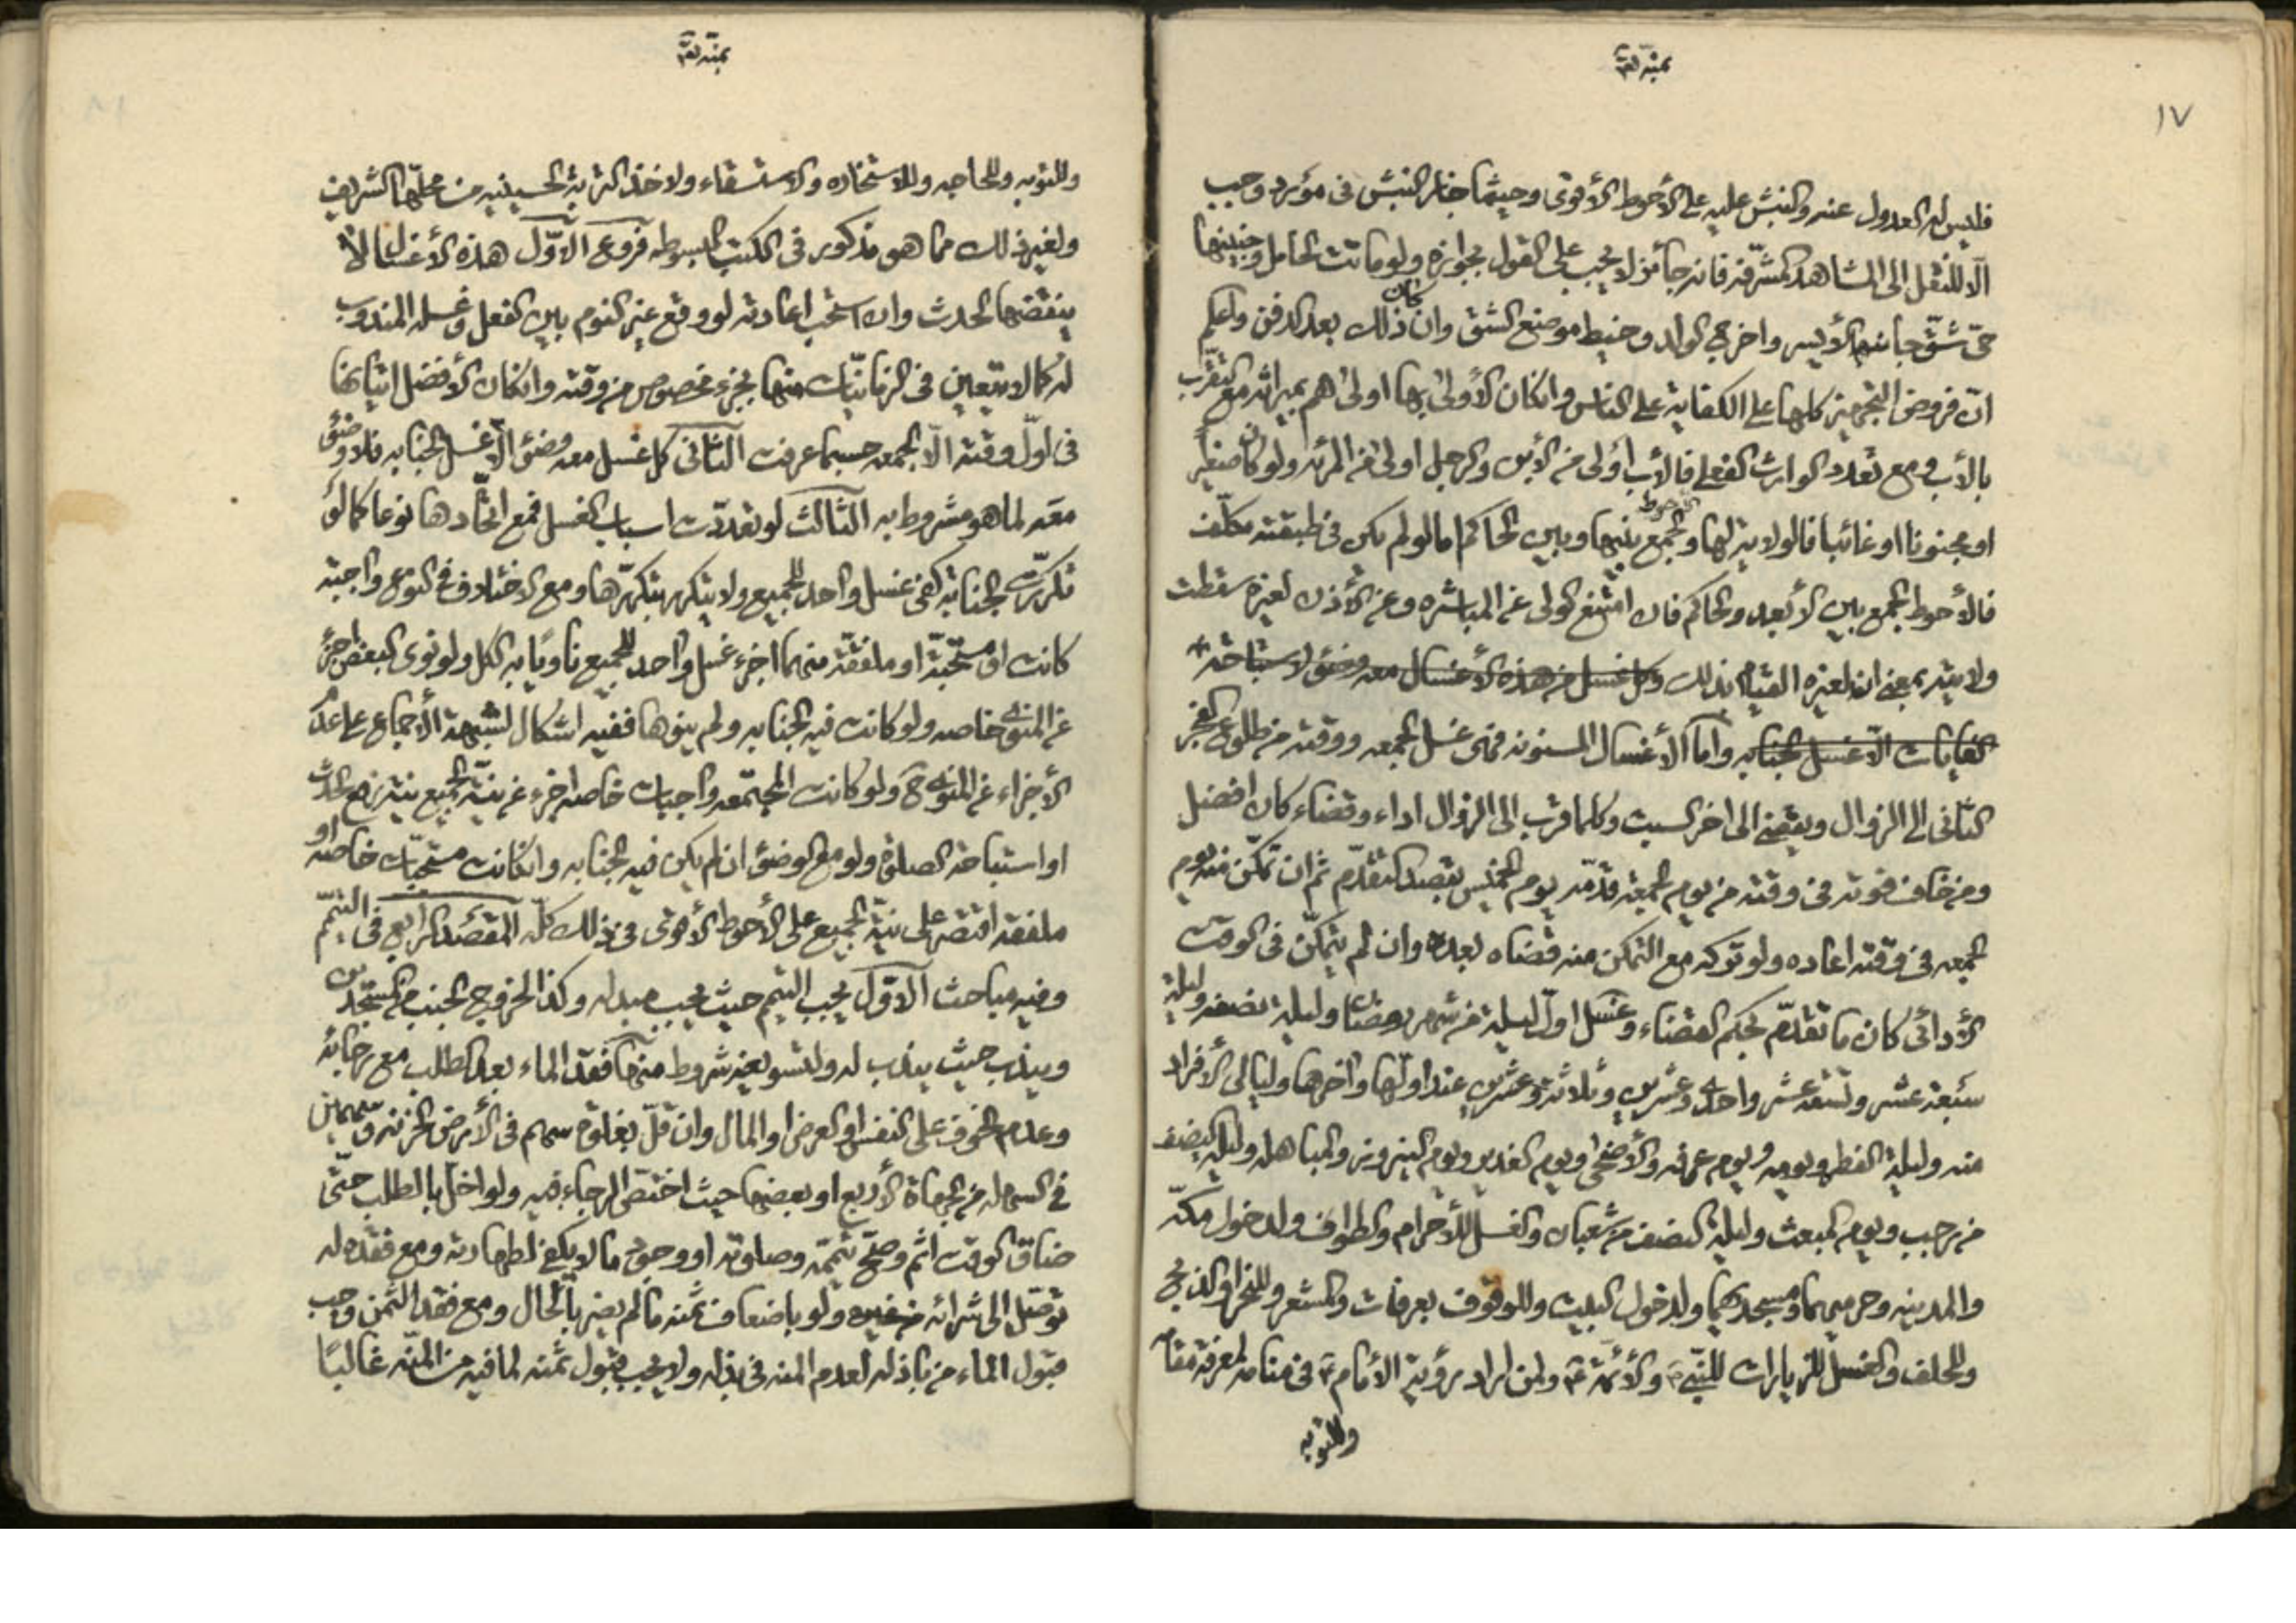 ١٧
بمنّه تعالى
فليس له العدول عنه والنبش عليه على الأحوط الأقوى وحيثما جاز النبش في مورد وجب
الّا للنقل الى المشاهد المشرّفة فانه جائز لا يجب على القول بجوازه ولو ماتت الحامل وجنينها
حيّ شقّ جانبها الأيسر واخرج الولد وخيط موضع الشق وان كان ذلك بعد الدفن واعلم
انّ فروض التجهيز كلها على الكفاية على الناس وانكان الأولى بها اولاهم بميراثه مع التقرب
بالأب ومع تعدد الوارث الفعلي فالأب أولى من الأبن والرجل اولى من المرئه ولو كان صغيراً
او مجنونا او غائبا فالولاية لها والأحوط الجمع بينها وبين الحاكم اما لو لم يكن في طبقته مكلّف
فالأحوط الجمع بين الأبعد والحاكم فان امتنع الولى عن المباشره وعن الأذن لغيره سقطت
ولايته بمعنى ان لغيره القيام بذلك وكل غسل من هذه الأغسال معه وضوء لاستباحة
الغايات الّا غسل الجنابه واما الأغسال المسنونه فمنها غسل الجمعه ووقته من طلوع الفجر
الثانى الى الزوال ويقضى الى اخر السبت وكلما قرب الى الزوال اداء وقضاء كان افضل
ومن خاف فوته في وقته من يوم الجمعة قدّمه يوم الخميس بقصد التقدّم ثم ان تمكّن منه يوم
الجمعه في وقته اعاده ولو تركه مع التمكن منه قضاه بعده وان لم يتمكّن في الوقت
الأدائى كان ما تقدّم بحكم القضاء وغسل اول ليلة من شهر رمضان وليلة نصفه وليلة
سبعة عشر وتسعة عشر واحدى وعشرين وثلاثة وعشرين عند اولها واخرها وليالى الأفراد
منه وليلة الفطر ويومه ويوم عرفه والأضحى ويوم الغدير ويوم النيروز والمباهله وليلة النصف
من رجب ويوم المبعث وليلة النصف من شعبان والغسل للأحرام والطواف ولدخول مكّه
والمدينه وحرميهما ومسجديهما ولدخول البيت وللوقوف بعرفات والمشعر وللنحر والذبح
والحلف والغسل للزيارات للنبي ص والأئمّة ع ولمن اراد رؤية الأمام ع في منامه لمعرفة مقامه
وللتوبه
بمنّه تعالى
وللتوبه وللحاجه وللاستخاره والاستسقاء ولاخذ التربة الحسينيه من محلّها الشريف
ولغير ذلك مما هو مذكور في الكتب المبسوطه فروع الاوّل هذه الأغسال لا
ينقضها الحدث وان استحب اعادته لو وقع غير النوم بين الفعل وغسله المندوب
له كما لا يتعين في الزمانيّات منها بجزء مخصوص من وقته وانكان الأفضل اتيانها
في اوّل وقته الّا الجمعه حسبما عرفت الثانى كل غسل معه وضوء الّا غسل الجنابه فلا وضوء
معه لما هو مشروط به الثالث لو تعدّدت اسباب الغسل فمع اتّحادها نوعا كما لو
تكرّرت الجنابة كفى غسل واحد للجميع ولا يتكرر بتكرّرها ومع الاختلاف في النوع واجبة
كانت او مستحبّة او ملفقة منهما اجزء غسل واحد للجميع ناويًا به الكل ولو نوى البعض اجزء
عن المنوى خاصه ولو كانت فيه الجنابه ولم ينوها ففيه اشكال لشبهة الأجماع على عدم
الأجزاء عن المنوى ح ولو كانت المجتمعه واجبات خاصه اجزء عن نيّة الجميع نية رفع الحدث
او استباحة الصلوة ولو مع الوضوء ان لم يكن فيه الجنابه وانكانت مستحبّات خاصه او
ملفقه اقتصر على نيّة الجميع على الأحوط الأقوى في ذلك كلّه المقصد الرابع في التيمّم
وفيه مباحث الاوّل يجب التيمم حيث يجب مبدله وكذا لخروج الجنب من المسجدين
ويندب حيث يندب له ولتسويغه شروط منها فقد الماء بعد الطلب مع رجائه
وعدم الخوف على النفس او العرض او المال وان قلّ بغلوة سهم في الأرض الحزنه وسهمين
في السهله من الجهاة الأربع او بعضها حيث اختص الرجاء فيه ولو اخلّ بالطلب حتّى
ضاق الوقت اثم وصحّ تيمّمه وصلوته او وجود ما لا يكفى لطهارته ومع فقده له
توصّل الى شرائه من غيره ولو باضعاف ثمنه ما لم يضر بالحال ومع فقد الثمن وجب
قبول الماء من باذله لعدم المنه في بذله ولا يجب قبول ثمنه لما فيه من المنّه غالبًا